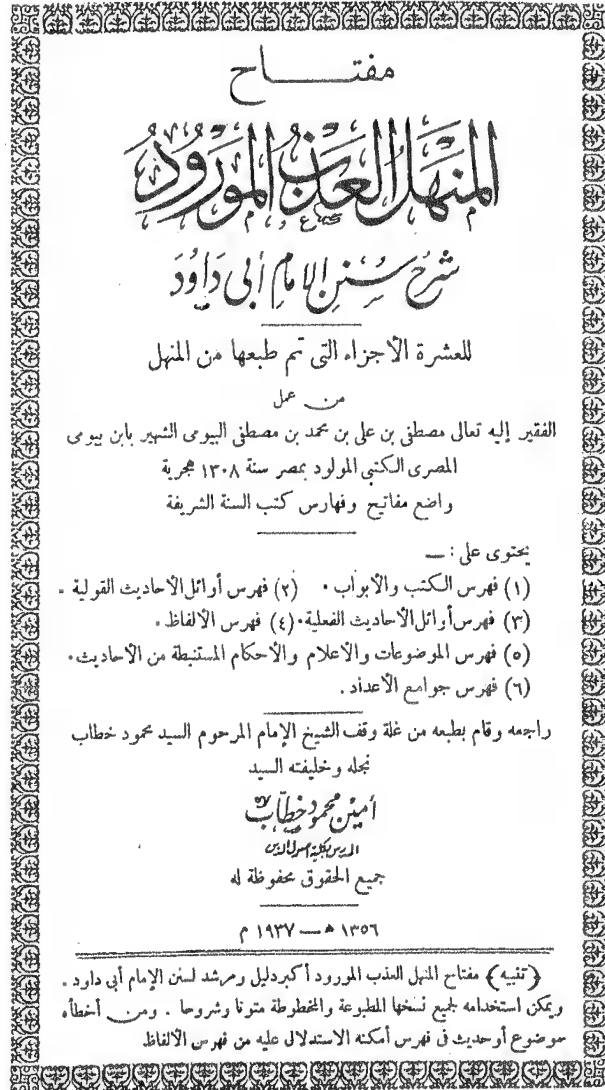 مفتـــاح
المنهل العذب المورود
شرح سنن الإمام أبى داود
للعشرة الأجزاء التى تم طبعها من المنهل
من عمل
الفقير إليه تعالى مصطفى بن على بن محمد بن مصطفى البيومى الشهير بابن بيومى
المصرى الكتبى المولود بمصر سنة ١٣٠٨ هجرية
واضع مفاتيح وفهارس كتب السنة الشريفة
يحتوى على : —
(١) فهرس الكتب والأبواب . (٢) فهرس أوائل الأحاديث القولية .
(٣) فهرس أوائل الأحاديث الفعلية . (٤) فهرس الألفاظ .
(٥) فهرس الموضوعات والأعلام والأحكام المستنبطة من الأحاديث .
(٦) فهرس جوامع الأعداد .
راجعه وقام بطبعه من غلة وقف الشيخ الإمام المرحوم السيد محمود خطاب
نجله وخليفته السيد
أمين محمود خطاب
المدرس بكلية أصول الدين
جميع الحقوق محفوظة له
١٣٥٦ هـ — ١٩٣٧ م
﴿تنبيه﴾ مفتاح المنهل العذب المورود أكبر دليل ومرشد لسنن الإمام أبى داود .
ويمكن استخدامه لجميع نسخها المطبوعة والمخطوطة متونا وشروحا . ومن أخطأه
موضوع أوحديث فى فهرس أمكنه الاستدلال عليه من فهرس الألفاظ